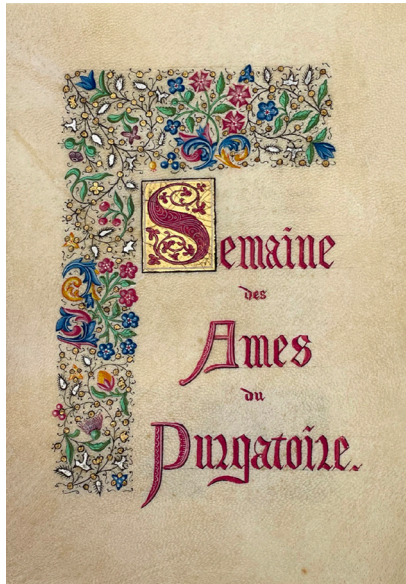 Semaine
des
Ames
du
Purgatoire.